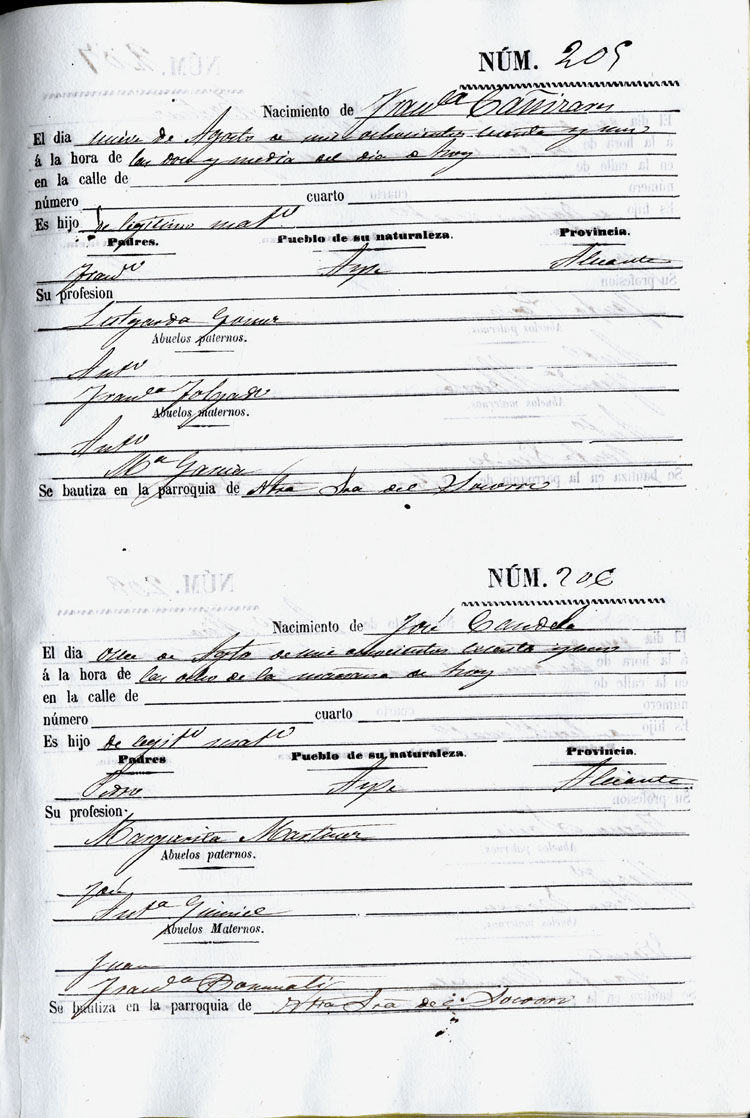 NÚM. 205
Nacimiento de Fran.ca Cañizares
El dia once de Agosto de mil ochocientos sesenta y uno
á la hora de las doce y media del dia de hoy
en la calle de
número cuarto
Es hijo de legitimo mat.o
Padres. Pueblo de su naturaleza. Provincia.
Fran.co Aspe Alicante
Su profesion
Lutgarda
Abuelos paternos.
Ant.o
Fran.ca
Abuelos maternos.
Ant.o
M.a Garcia
Se bautiza en la parroquia de Ntra Sra del Socorro
NÚM. 206
Nacimiento de José Candela
El dia once de Agto de mil ochocientos sesenta y uno
á la hora de las ocho de la mañana de hoy
en la calle de
número cuarto
Es hijo de legit.o mat.o
Padres Pueblo de su naturaleza. Provincia.
Pedro Aspe Alicante
Su profesion.
Margarita Martinez
Abuelos paternos.
José
Ant.a
Abuelos Maternos.
Juan
Fran.ca
Se bautiza en la parroquia de Ntra Sra del Socorro